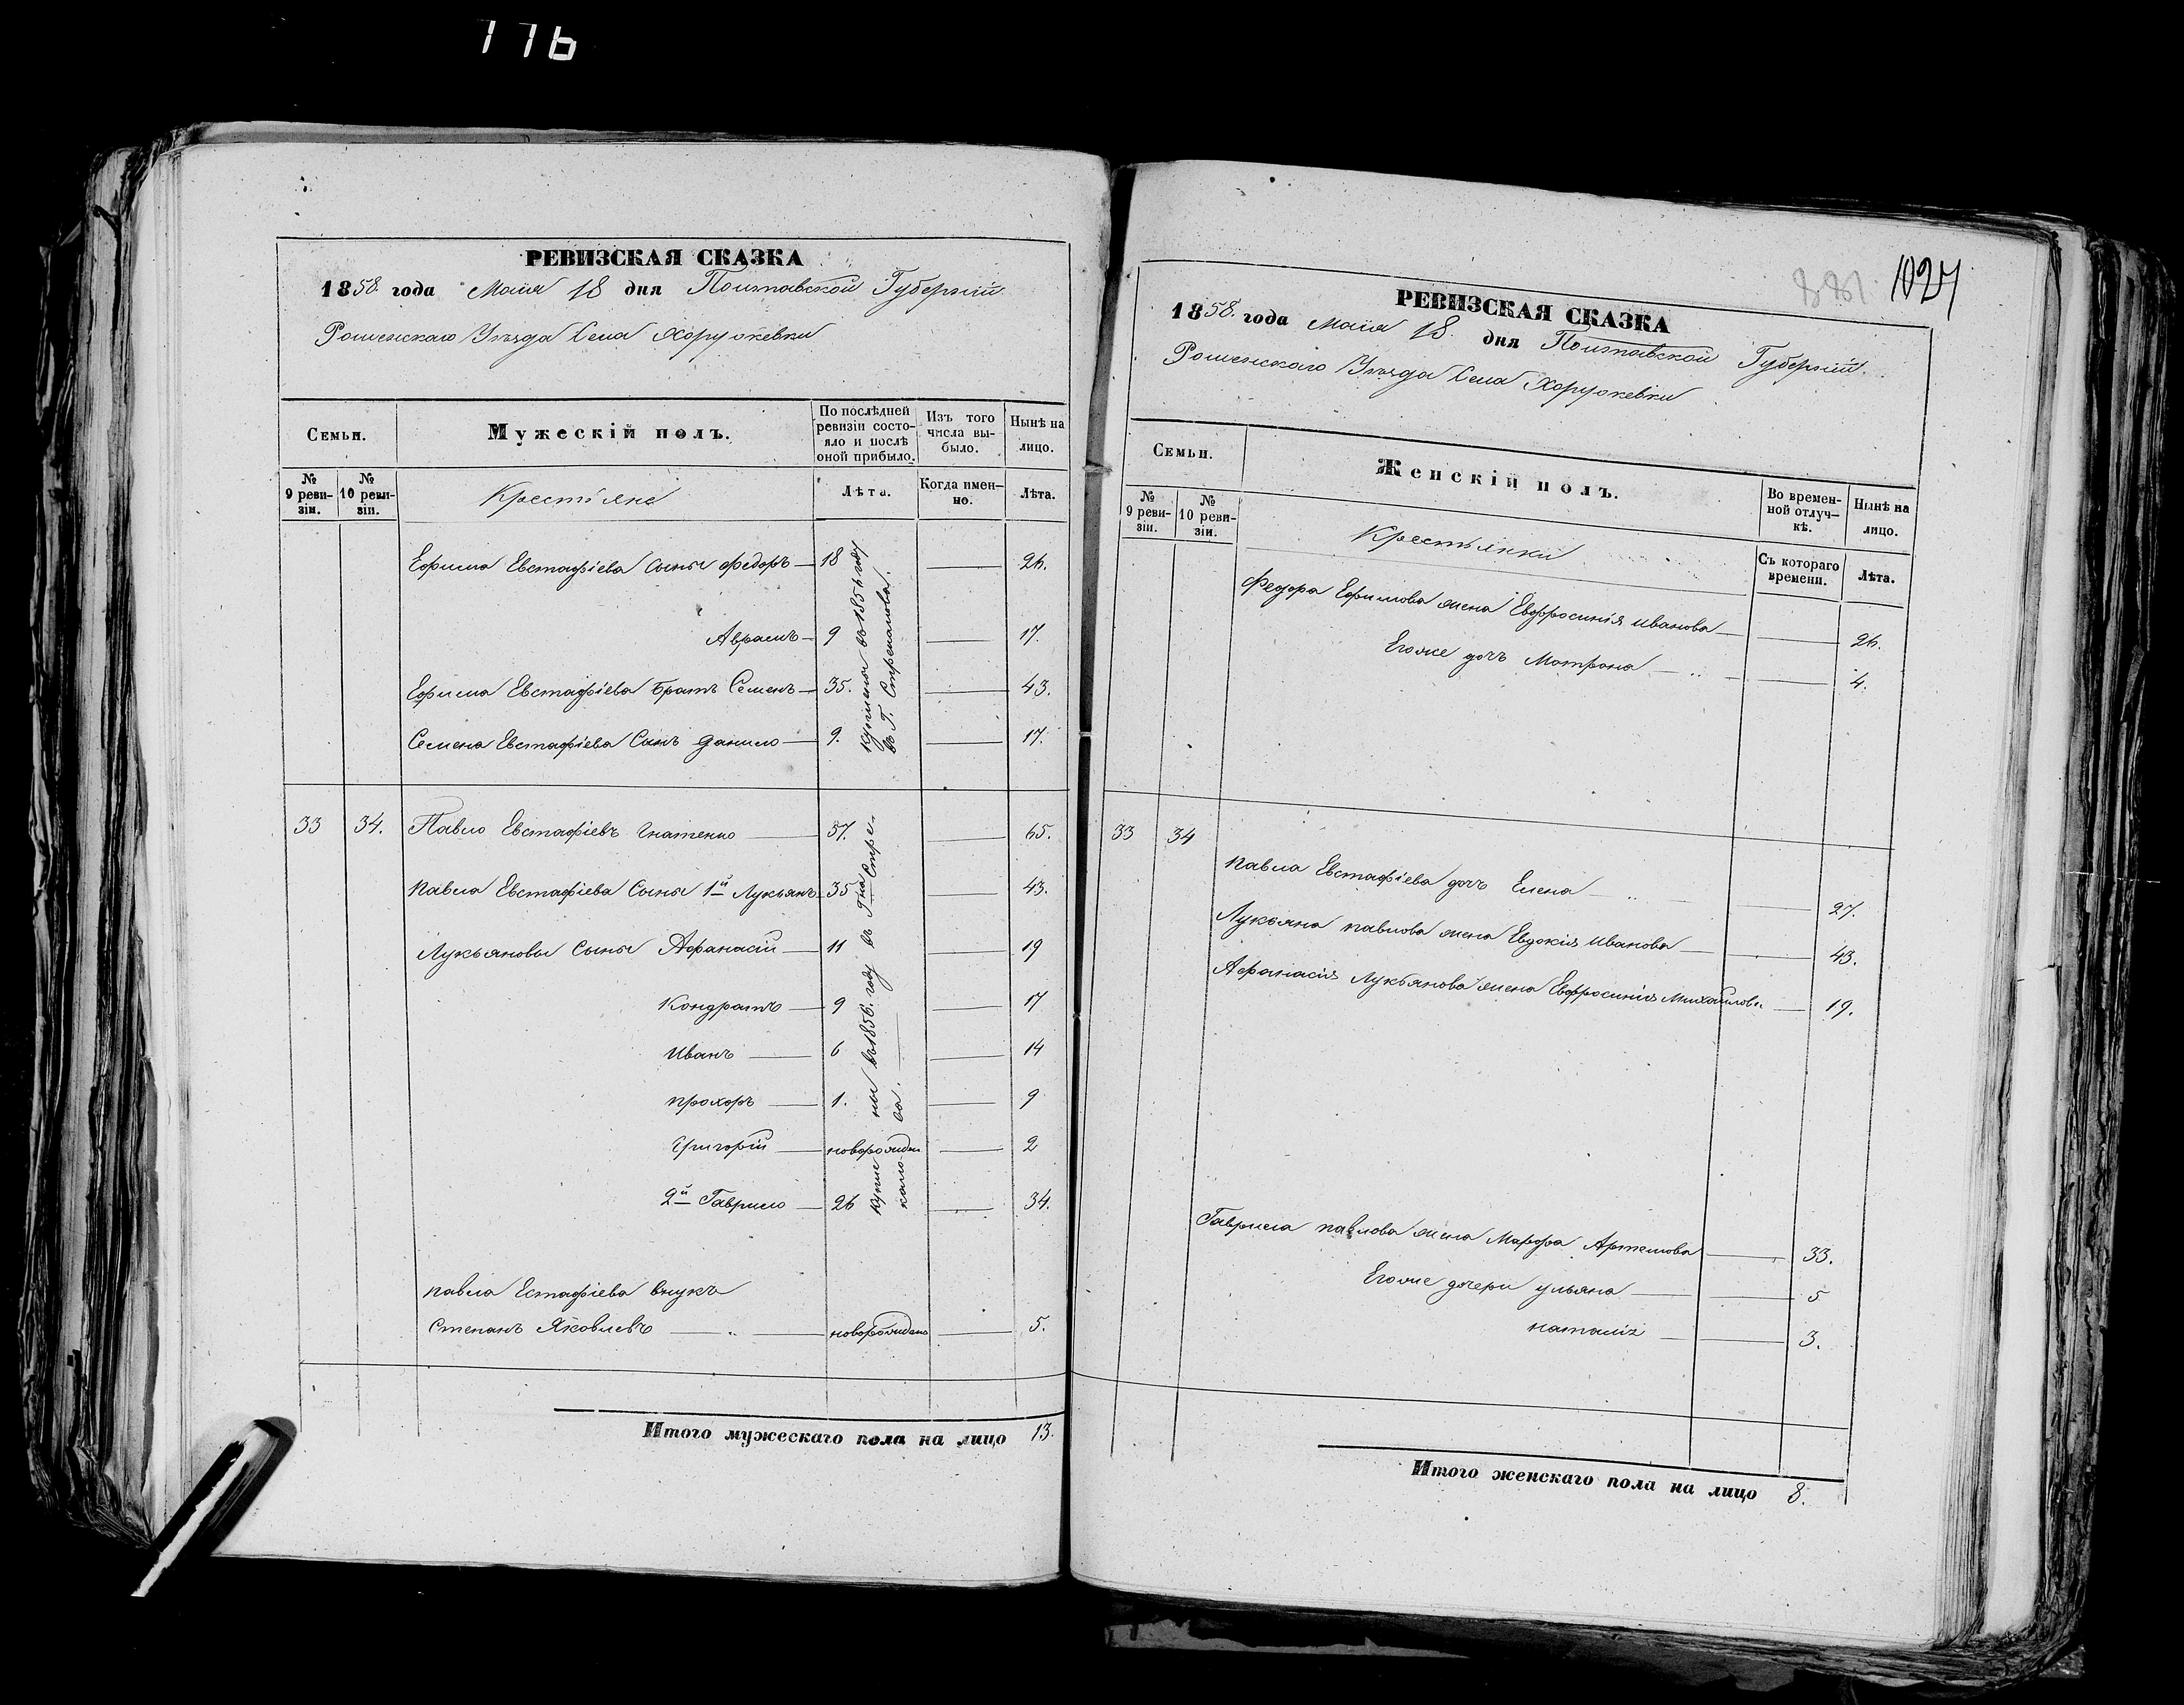 116
РЕВИЗСКАЯ СКАЗКА
1858. года Маия 18 дня Полтавской Губерніи
Роменскаго Уѣзда Села Хоружевки
Семьи.
Мужескій полъ.
По послѣдней ревизіи состояло и послѣ оной прибыло.
Изъ того числа выбыло.
Нынѣ на лицо.
№ 9 ревизіи.
№ 10 ревизіи.
Крестьяне
Лѣта.
Когда именно.
Лѣта.
Ефима Евстафіева Сыны Федоръ 18 26.
Аврамъ 9 17.
Ефима Евстафіева Братъ Семенъ 35. 43.
Семена Евстафіева Сынъ Данило 9. 17.
куплены въ 1856 году
въ Г. Стремаухова.
33 34. Павло Евстафіевъ Гнатенко 57. 65.
Павла Евстафіева Сыны 1й Лукьянъ 35 43.
Лукьяновы Сыны Афанасій 11 19
Кондратъ 9 17
Иванъ 6 14
Прохоръ 1. 9
Григорій новорожден 2
2й Гаврило 26 34.
куплены въ 1856. году въ Гна Стре
Павла Естафіева внукъ
Степанъ Яковлевъ новорожденъ 5.
Итого мужескаго пола на лицо 13.
881 1027
РЕВИЗСКАЯ СКАЗКА
1858. года Маия 18 дня Полтавской Губерніи
Роменскаго Уѣзда Села Хоружевки
Семьи.
Женскій полъ.
Во временной отлучкѣ.
Нынѣ на лицо.
№ 9 ревизіи.
№ 10 ревизіи.
Крестьянки
Съ котораго времени.
Лѣта.
Федора Ефимова жена Евфросинія Иванова 26.
Егоже дочь Матрона 4.
33 34
Павла Евстафіева дочь Елена 27.
Лукьяна Павлова жена Евдокія Иванова 43.
Афанасія Лукьянова жена Евфросинія Михайлова 19.
Гаврила Павлова жена Марфа Артемова 33.
Егоже дочери Ульяна 5
Наталія 3.
Итого женскаго пола на лицо 8.